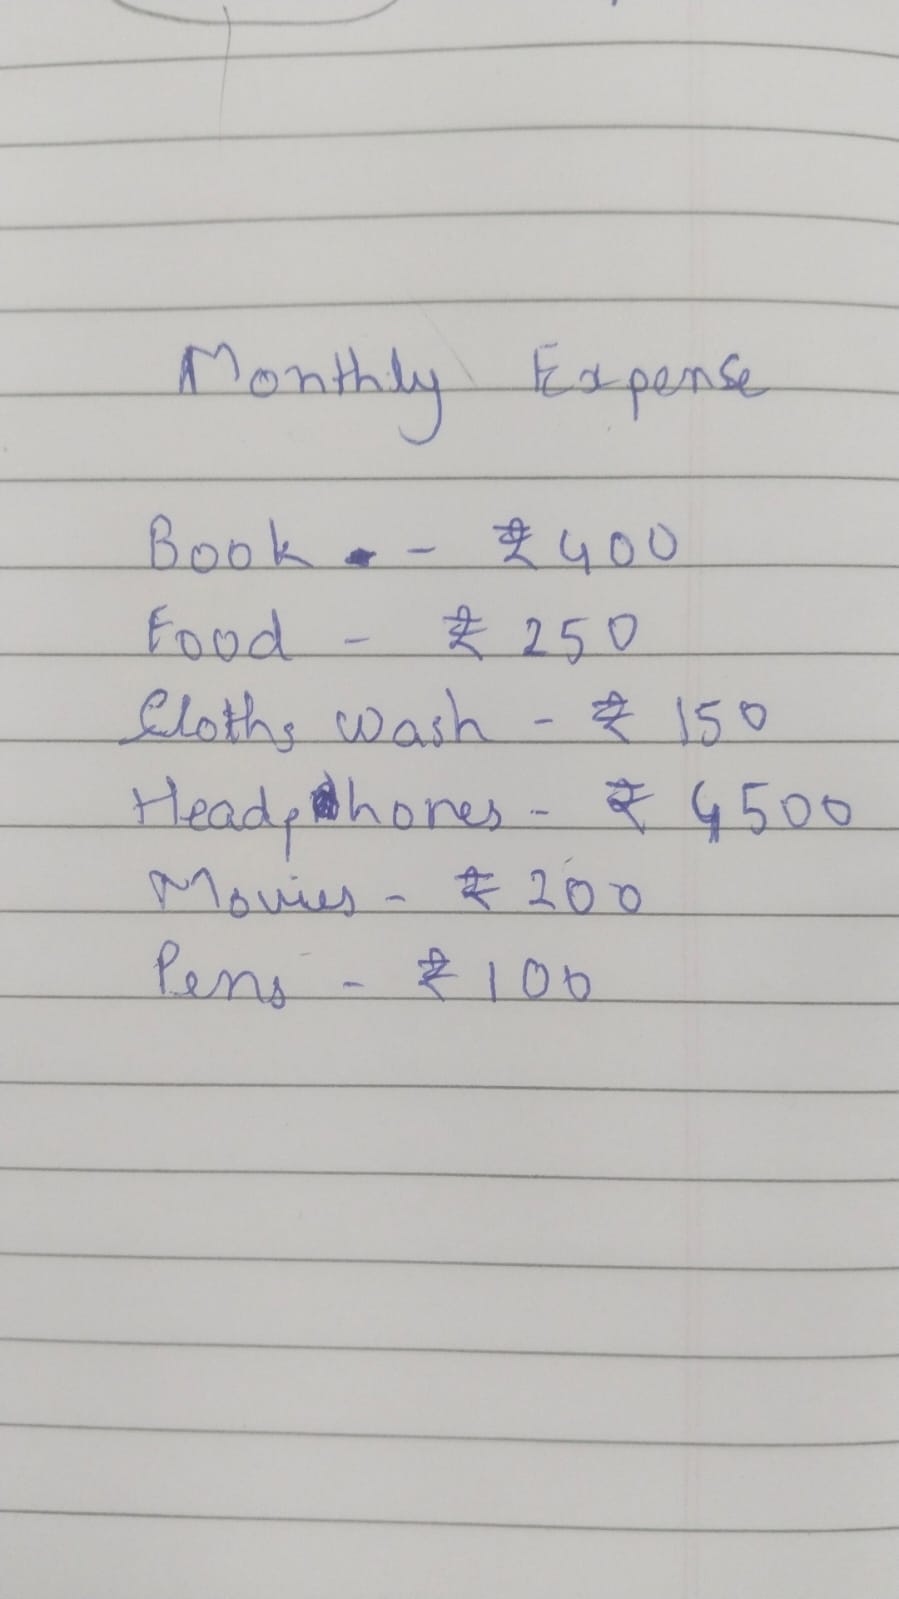 Monthly Expense
Book - ₹400
Food - ₹ 250
Cloths wash - ₹ 150
Headphones - ₹ 4500
Movies - ₹ 200
Pens - ₹100